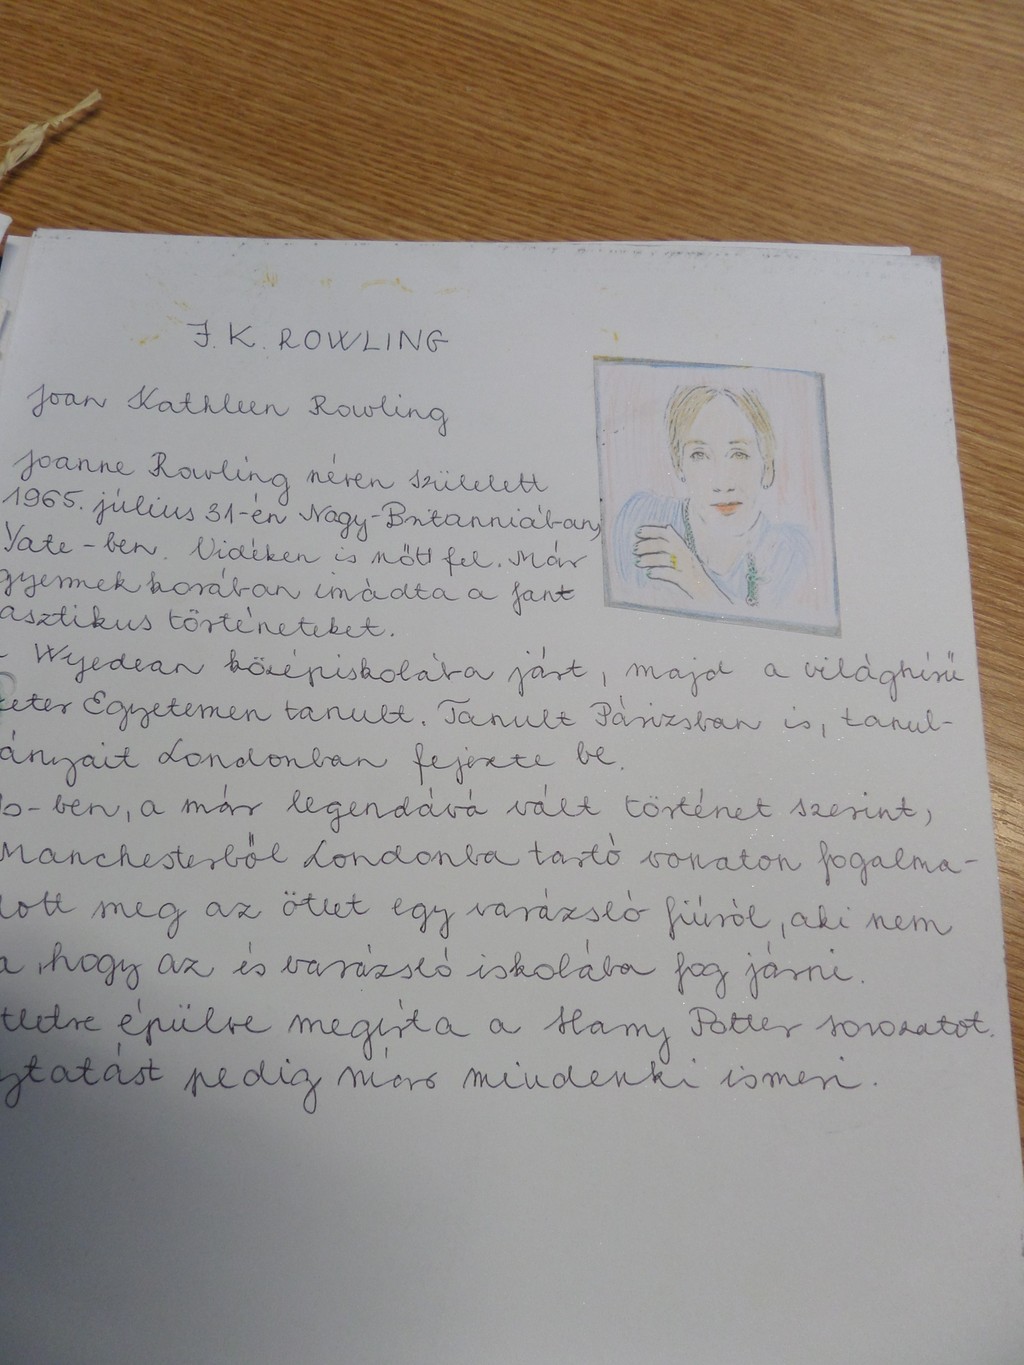 J. K. ROWLING
Joan Kathleen Rowling
Joanne Rowling néven született
1965. július 31-én Nagy-Britanniában,
Yate-ben. Vidéken is nőtt fel. Már
gyermekkorában imádta a fant
asztikus történeteket.
Wyedean középiskolába járt, majd a világhírű
eter Egyetemen tanult. Tanult Párizsban is, tanul-
ányait Londonban fejezte be.
-ben, a már legendává vált történet szerint,
Manchesterből Londonba tartó vonaton fogalma-
dott meg az ötlet egy varázsló fiúról, aki nem
a, hogy az és varázsló iskolába fog járni.
tletre épülve megírta a Harry Potter sorozatot.
ytatást pedig már mindenki ismeri.